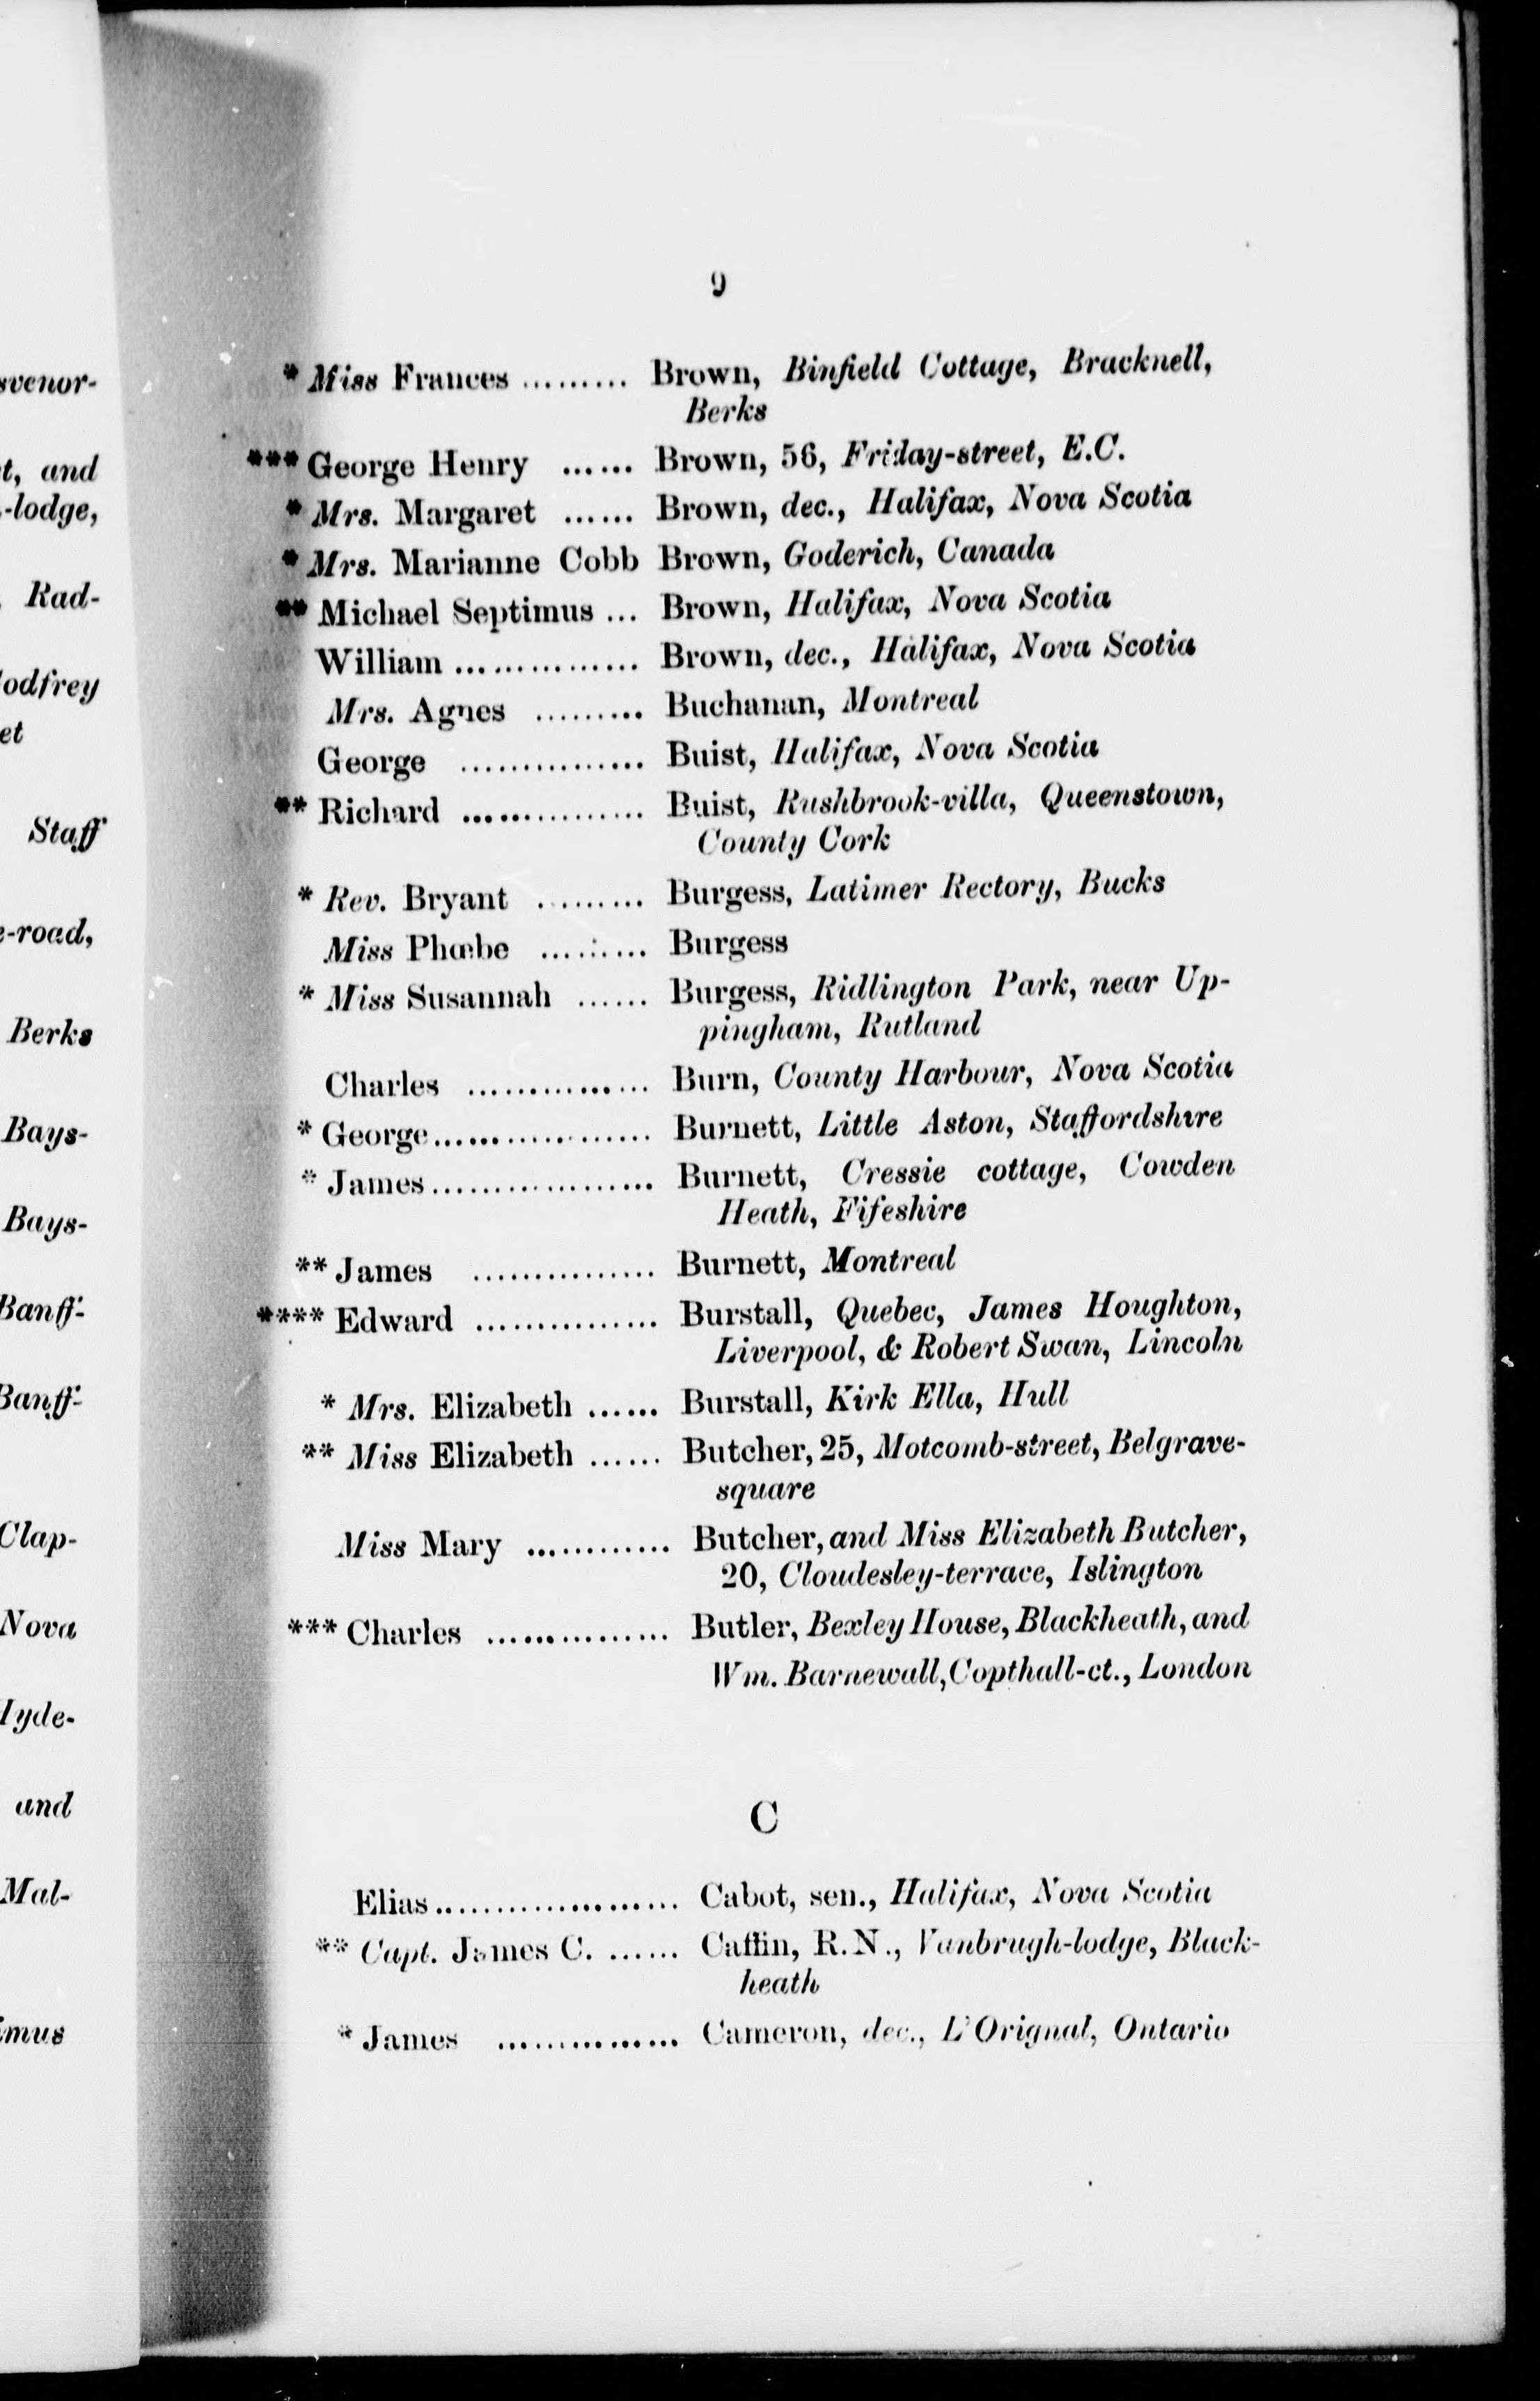 svenor-
t, and
-lodge,
Rad-
odfrey
et
Staff
e-road,
Berks
Bays-
Bays-
Banff-
Banff-
Clap-
Nova
Hyde-
and
Mal-
imus
9
* Miss Frances ......... Brown, Binfield Cottage, Bracknell,
Berks
*** George Henry ...... Brown, 56, Friday-street, E.C.
* Mrs. Margaret ...... Brown, dec., Halifax, Nova Scotia
* Mrs. Marianne Cobb Brown, Goderich, Canada
** Michael Septimus ... Brown, Halifax, Nova Scotia
William ............... Brown, dec., Halifax, Nova Scotia
Mrs. Agnes ......... Buchanan, Montreal
George ............... Buist, Halifax, Nova Scotia
** Richard ............... Buist, Rushbrook-villa, Queenstown,
County Cork
* Rev. Bryant ......... Burgess, Latimer Rectory, Bucks
Miss Phœbe ......... Burgess
* Miss Susannah ...... Burgess, Ridlington Park, near Up-
pingham, Rutland
Charles ............... Burn, County Harbour, Nova Scotia
* George.................. Burnett, Little Aston, Staffordshire
* James.................. Burnett, Cressie cottage, Cowden
Heath, Fifeshire
** James ............... Burnett, Montreal
**** Edward ............... Burstall, Quebec, James Houghton,
Liverpool, & Robert Swan, Lincoln
* Mrs. Elizabeth ...... Burstall, Kirk Ella, Hull
** Miss Elizabeth ...... Butcher, 25, Motcomb-street, Belgrave-
square
Miss Mary ............ Butcher, and Miss Elizabeth Butcher,
20, Cloudesley-terrace, Islington
*** Charles ............... Butler, Bexley House, Blackheath, and
Wm. Barnewall, Copthall-ct., London
C
Elias.................... Cabot, sen., Halifax, Nova Scotia
** Capt. James C. ...... Caffin, R.N., Vanbrugh-lodge, Black-
heath
* James ............... Cameron, dec., L'Orignal, Ontario